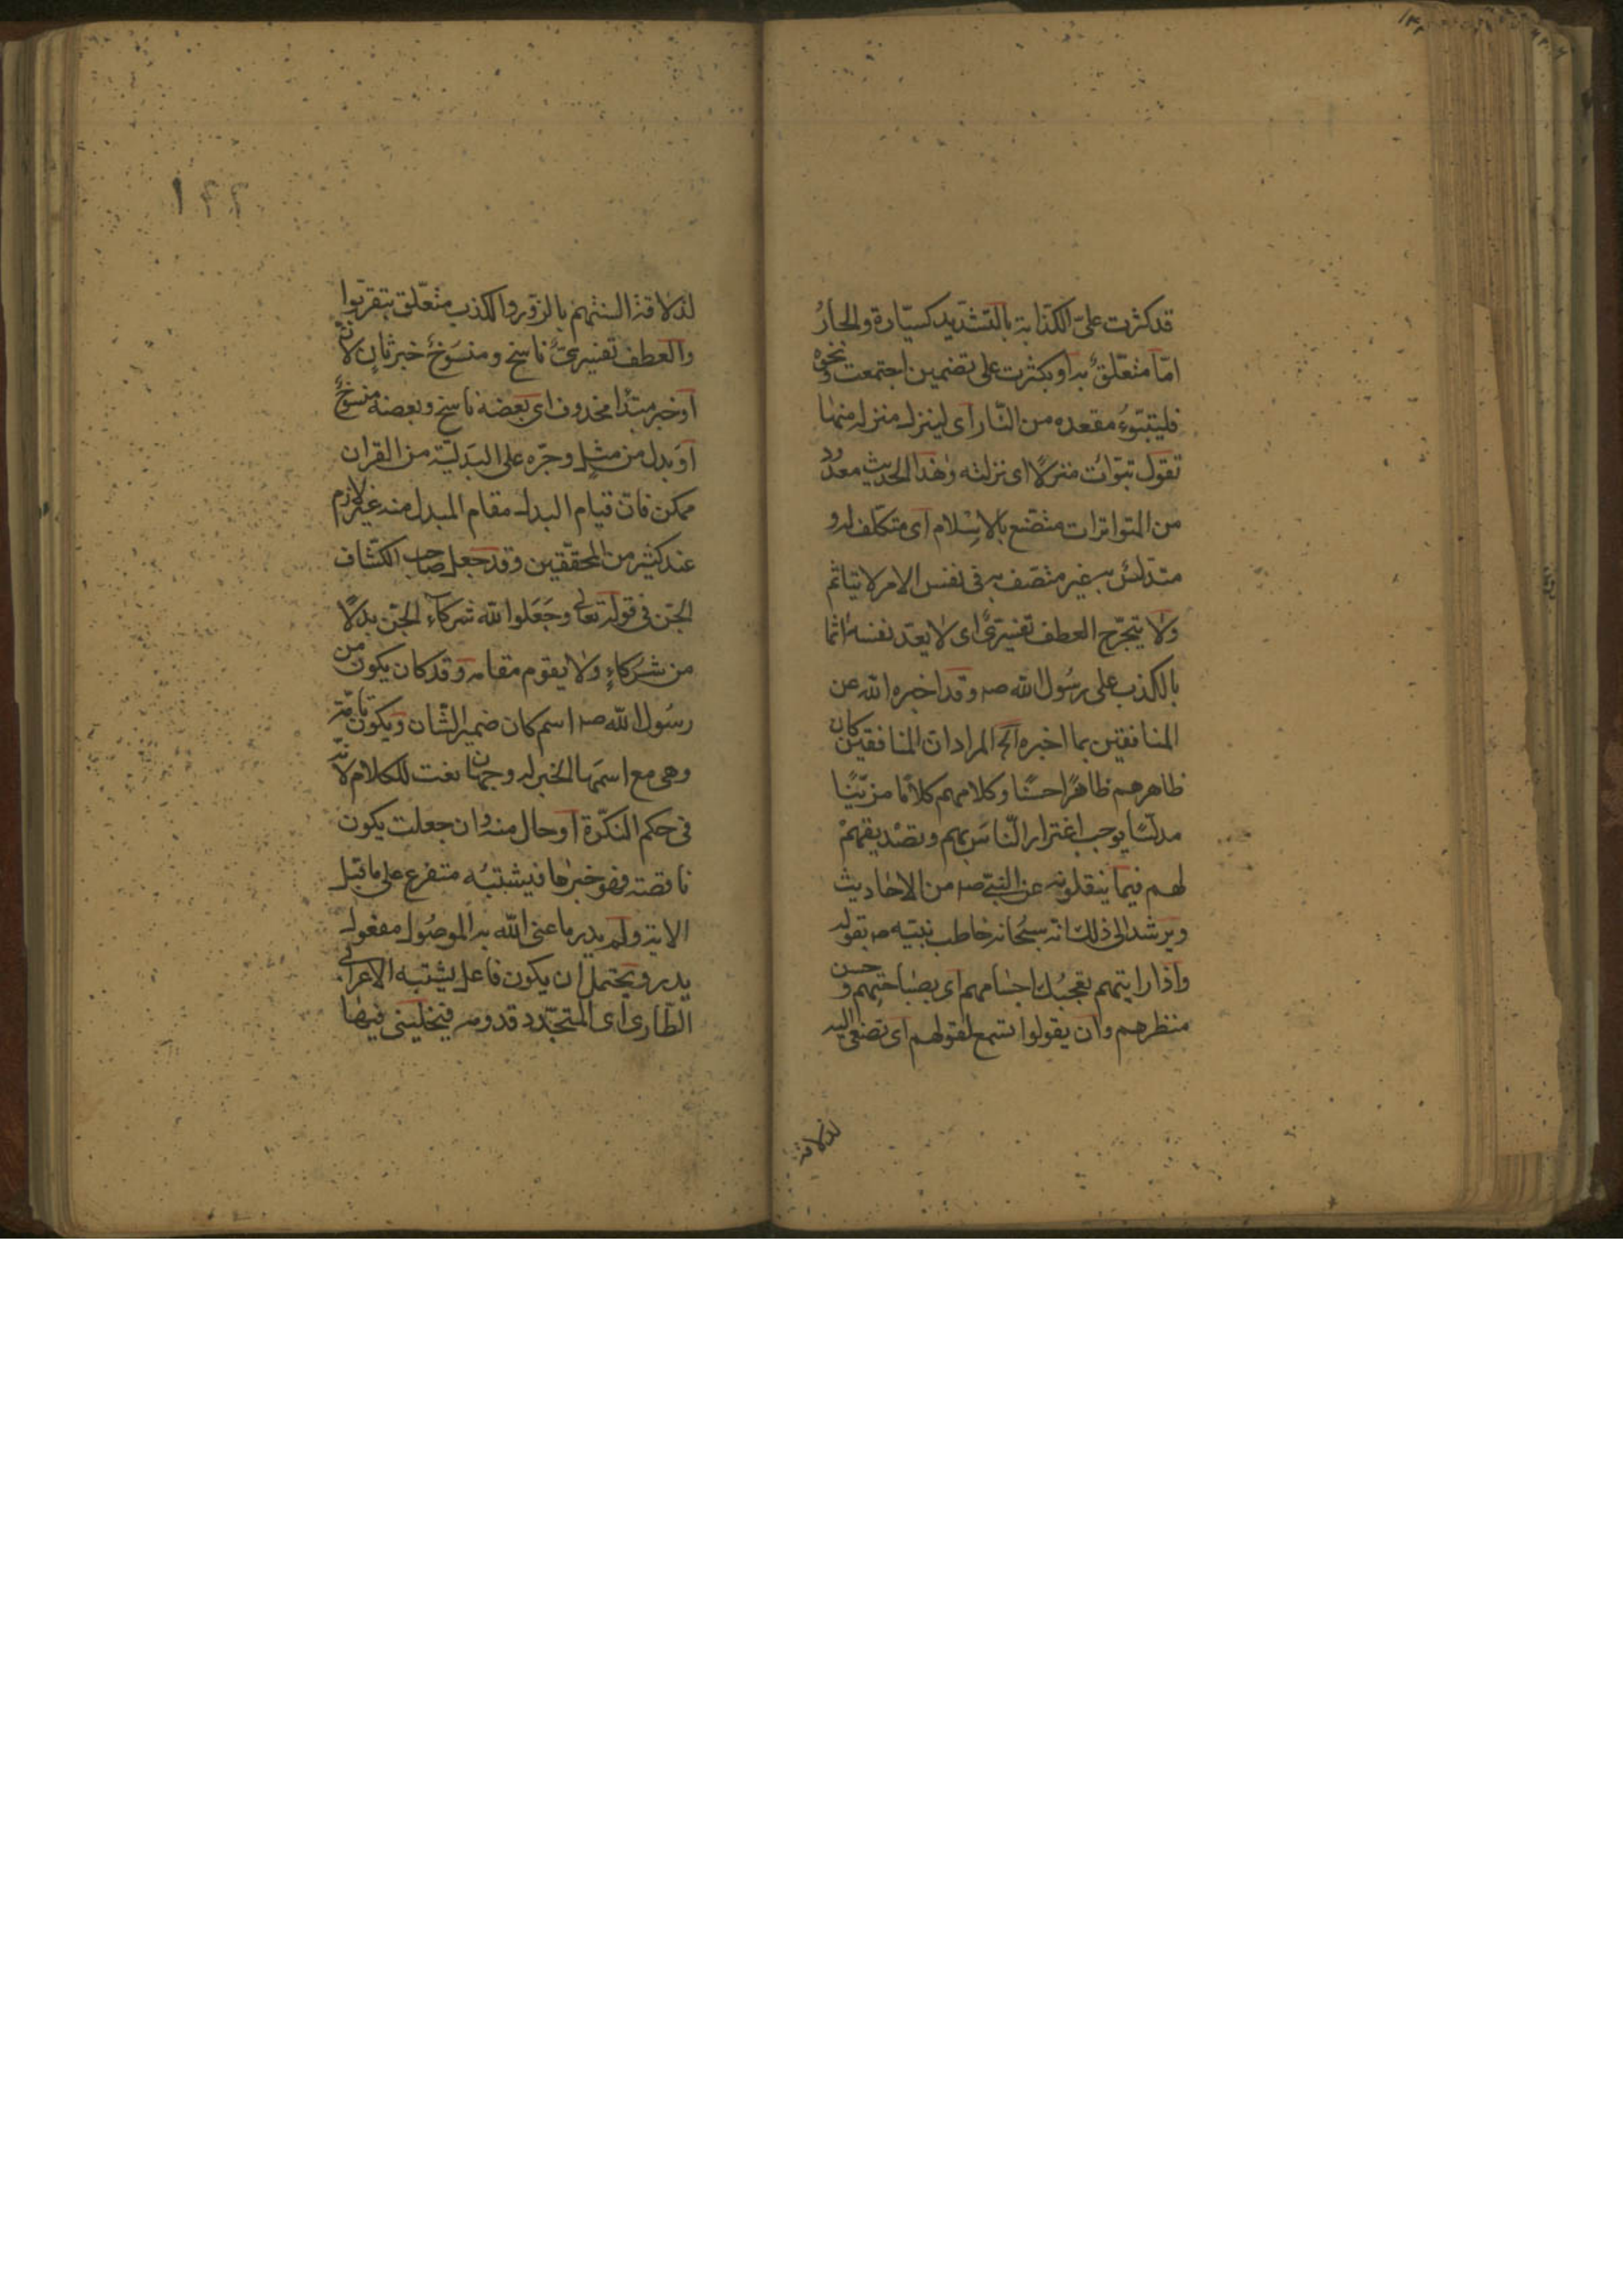 قد كثرت علیّ الكذّابة بالتشديد كسيّارة والجارُ
امّا متعلّقٌ به او بكثرت على تضمين اجتمعت ونحوه
فليتبوّء مقعده من النّار اى لينزل منزله منها
تقول تبوّات منزلًا اى نزلته وهذا الحديث معدود
من المتواترات متصنّع بالاسلام اى متكلّف له و
متدلّس به غير متصف به فى نفس الامر لا يتاثم
ولا يتحرّج العطف تفسيرىٌّ اى لا يعدّ نفسه اثما
بالكذب على رسُول الله صه وقد اخبره الله عن
المنافقين بما اخبره آلخ المراد ان المنافقين كان
ظاهرهم ظاهرًا حسنًا وكلامهم كلامًا مزيّنًا
مدلّسًا يوجب اغترار النّاس بهم وتصديقهمْ
لهم فيما ينقلونه عن النبىّ صه من الاحاديث
ويرشد الى ذلك انّه سبُحانه خاطب نبيّه صه بقوله
واذا رايتهم تعجبُك اجسامهم اى بصباحتهم وحسن
منظرهم وان يقولوا تسمع لقولهم اى تصغى اليه
لذلاقة
١٢٢
لذلاقة السنتهم بالزّور والكذب متعلّق بتقرّبوا
والعطف تفسيرىٌّ ناسخ ومنسَوخٌ خبر ثانٍ لانّ
اوخبر مبتدا محذوف اى بعضه ناسخ وبعضه منسوخٌ
اوبدل من مثل وجرّه على البدليّة من القران
ممكن فانّ قيام البدل مقام المبدل منه غير لازم
عند كثير من المحقّقين وقد جعل صاحب الكشّاف
الجنّ فى قوله تعالى وجَعَلوا لله شركاء الجنّ بدلًا
من شركاءٍ ولا يقوم مقامه وقد كان يكون من
رسُول الله صه اسم كان ضمير الشّان ويكون تامّة
وهى مع اسمها الخبر له وجهان نعت للكلام لانّه
فى حكم النكّرة او حال منه وان جعلت يكون
ناقصة فهو خبرها فيشتبُه متفرع على ما قبل
الاية ولم يدر ما عنى الله به الموصُول مفعول
يدر ويحتمل ان يكون فاعل يشتبه الاعرابى
الطّارى اى المتجّدد قدومه فيخلينى فيها